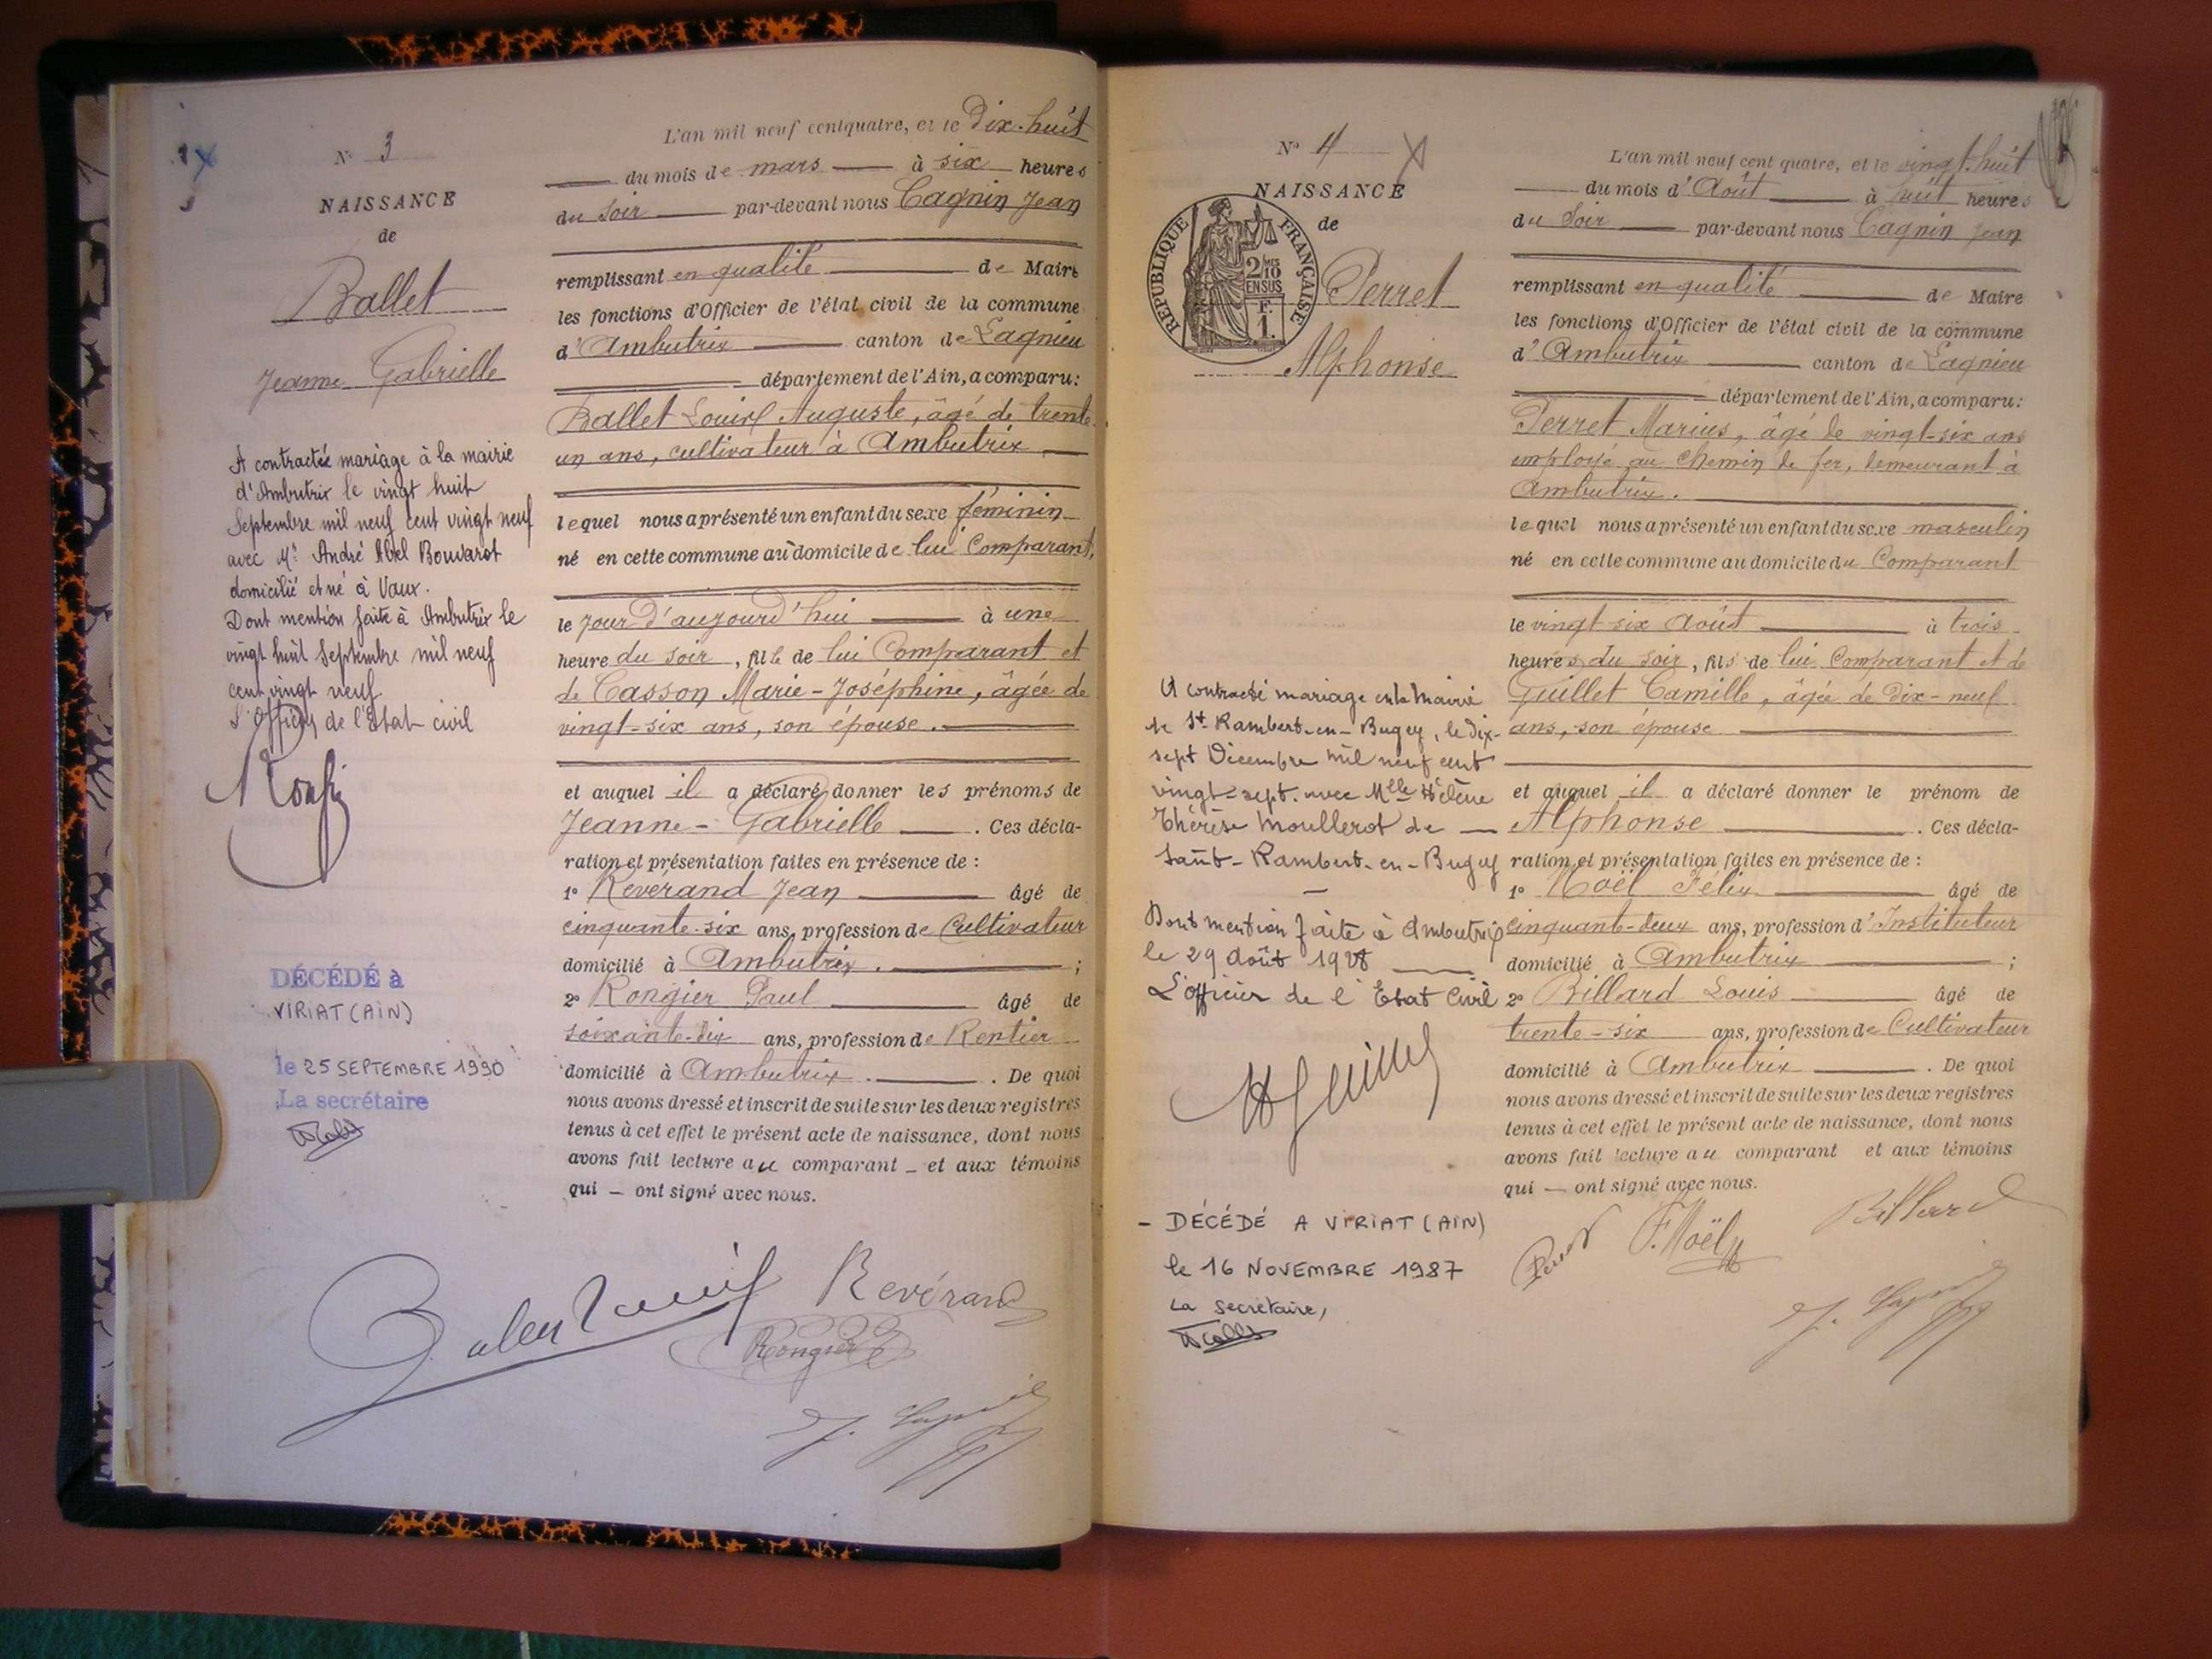 N° 3
NAISSANCE
de
Ballet
Jeanne Gabrielle
A contractée mariage à la mairie
d'Ambutrix le vingt huit
Septembre mil neuf cent vingt neuf
avec Mr André Abel Bouvarot
domicilié et né à Vaux.
Dont mention faite à Ambutrix le
vingt huit Septembre mil neuf
cent vingt neuf
L'Officier de l'Etat civil
DÉCÉDÉ à
VIRIAT (AIN)
le 25 SEPTEMBRE 1990
La secrétaire
L'an mil neuf cent quatre, et le Dix-huit
du mois de mars à six heures
du soir par-devant nous Cagnin Jean
remplissant en qualité de Maire
les fonctions d'Officier de l'état civil de la commune
d'Ambutrix canton de Lagnieu
département de l'Ain, a comparu:
Ballet Louis Auguste, âgé de trente
un ans, cultivateur à Ambutrix
lequel nous a présenté un enfant du sexe féminin
né en cette commune au domicile de lui Comparant,
le jour d'aujourd'hui à une
heure du soir, fille de lui Comparant et
de Casson Marie-Joséphine, âgée de
vingt-six ans, son épouse.
et auquel il a déclaré donner les prénoms de
Jeanne-Gabrielle. Ces décla-
ration et présentation faites en présence de :
1° Revérand Jean âgé de
cinquante-six ans, profession de Cultivateur
domicilié à Ambutrix. ;
2° Rongier Paul âgé de
soixante-dix ans, profession de Rentier
domicilié à Ambutrix. . De quoi
nous avons dressé et inscrit de suite sur les deux registres
tenus à cet effet le présent acte de naissance, dont nous
avons fait lecture au comparant – et aux témoins
qui – ont signé avec nous.
Revérand
Rongier
N° 4
NAISSANCE
de
RÉPUBLIQUE FRANÇAISE
2/10
EN SUS
F.
1.
Perret
Alphonse
A contracté mariage en la Mairie
de St Rambert-en-Bugey, le dix-
sept Décembre mil neuf cent
vingt-sept. avec Melle Hélène
Thérèse Moullerot de
Saint-Rambert-en-Bugey
Dont mention faite à Ambutrix
le 29 Août 1928
L'officier de l'Etat Civil
- DÉCÉDÉ A VIRIAT (AIN)
le 16 NOVEMBRE 1987
La secrétaire,
L'an mil neuf cent quatre, et le vingt-huit
du mois d'Août à huit heures
du Soir par-devant nous Cagnin Jean
remplissant en qualité de Maire
les fonctions d'Officier de l'état civil de la commune
d'Ambutrix canton de Lagnieu
département de l'Ain, a comparu:
Perret Marius, âgé de vingt-six ans
employé au Chemin de fer, demeurant à
Ambutrix.
lequel nous a présenté un enfant du sexe masculin
né en cette commune au domicile du Comparant
le vingt-six Août à trois
heures du soir, fils de lui Comparant et de
Guillet Camille, âgée de Dix-neuf
ans, son épouse
et auquel il a déclaré donner le prénom de
Alphonse. Ces décla-
ration et présentation faites en présence de :
1° Noël Félix âgé de
cinquante-deux ans, profession d'Instituteur
domicilié à Ambutrix ;
2° Billard Louis âgé de
trente-six ans, profession de Cultivateur
domicilié à Ambutrix. De quoi
nous avons dressé et inscrit de suite sur les deux registres
tenus à cet effet le présent acte de naissance, dont nous
avons fait lecture au comparant et aux témoins
qui — ont signé avec nous.
Perret F. Noël Billard